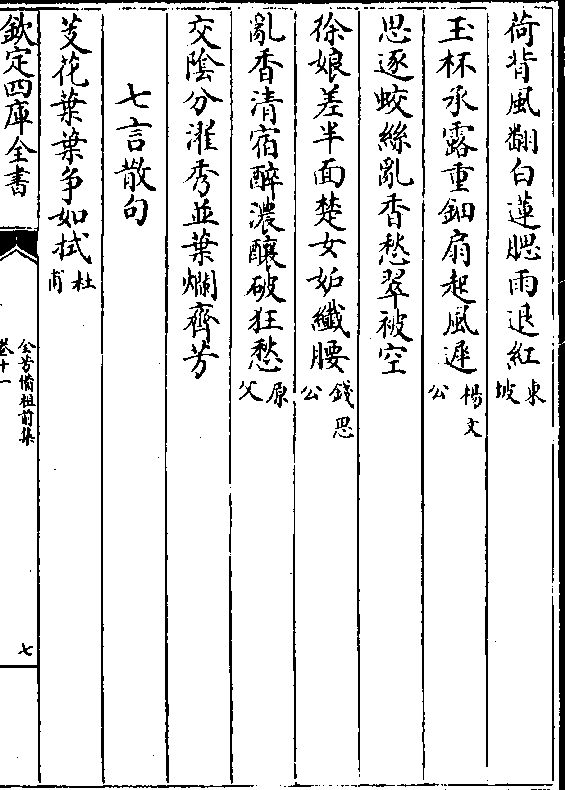 荷背風翻白蓮腮雨退紅東坡
玉杯承露重鈿扇起風遲楊文公
思逐蛟絲亂香愁翠被空
徐娘差半面楚女妬纖腰錢思公
亂香清宿醉濃釀破狂愁原父
交陰分濯秀並葉爛齊芳
七言散句
芰花葉葉争如拭杜甫
欽定四庫全書
全芳備祖前集
卷十一
七